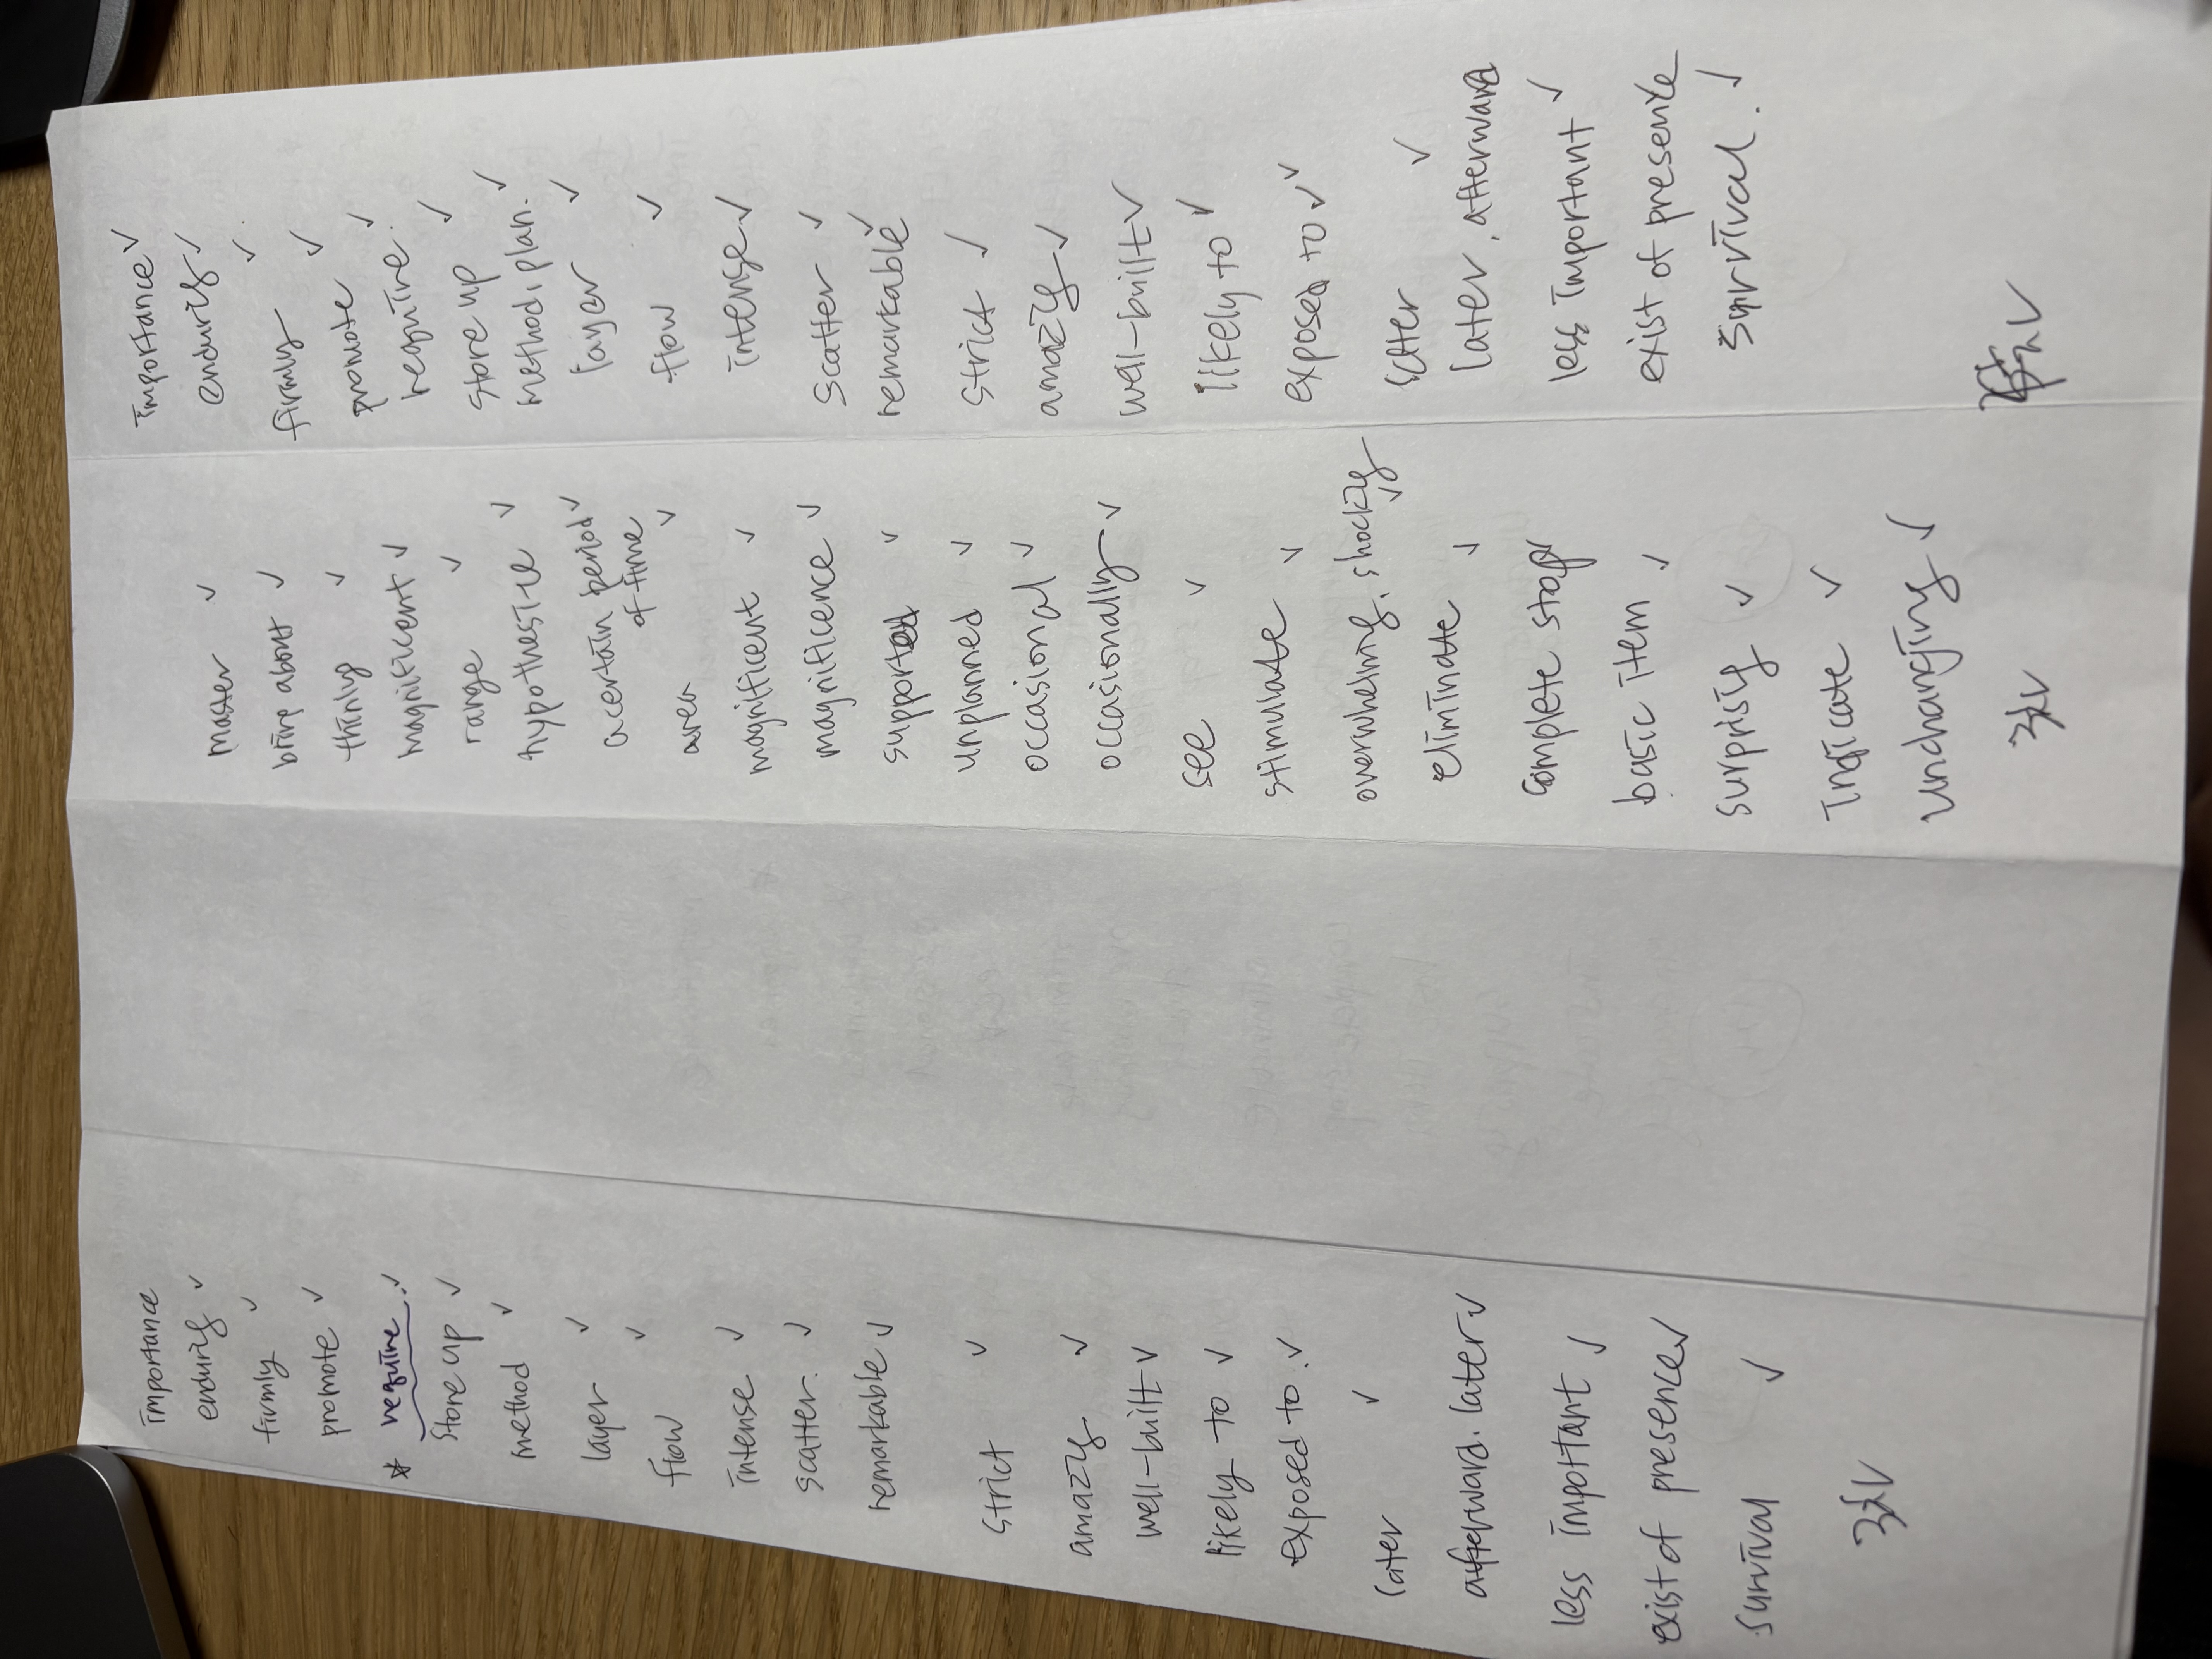 importance
enduring ✓
firmly ✓
promote ✓
* require. ✓
store up ✓
method ✓
layer ✓
flow ✓
intense ✓
scatter. ✓
remarkable ✓
strict ✓
amazing ✓
well-built ✓
likely to ✓
exposed to. ✓
later ✓
afterward. later ✓
less important ✓
exist of presence ✓
survival ✓
3차 ✓
master ✓
bring about ✓
thinly ✓
magnificent ✓
range ✓
hypothesize ✓
a certain period ✓
of time
area ✓
magnificent ✓
magnificence ✓
supported ✓
unplanned ✓
occasional ✓
occasionally ✓
see ✓
stimulate ✓
overwhelming, shocking ✓
eliminate ✓
complete stop
basic item ✓
surprising ✓
indicate ✓
unchanging ✓
3차 ✓
importance ✓
enduring ✓
firmly ✓
promote ✓
require. ✓
store up ✓
method, plan. ✓
layer ✓
flow ✓
intense ✓
scatter ✓
remarkable ✓
strict ✓
amazing ✓
well-built ✓
likely to ✓
exposed to ✓ ✓
later, afterward
less important ✓
exist of presence
survival. ✓